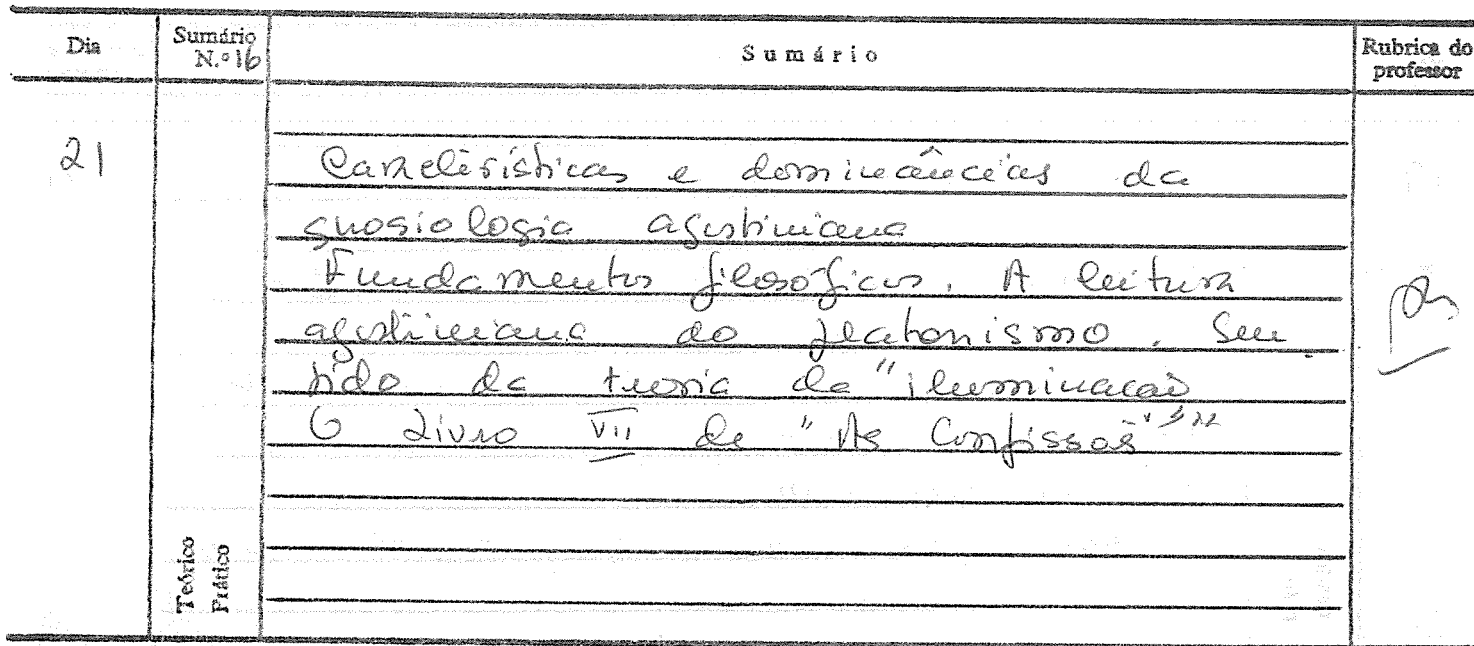 Dia
Sumário
N.º 16
Sumário
Rubrica do
professor
21
Características e dominâncias da
gnosiologia agustiniana
Fundamentos filosóficos. A leitura
agustiniana do platonismo. Sen
tido da teoria da "iluminação
O Livro VII de "As Confissões"
Teórico
Prático